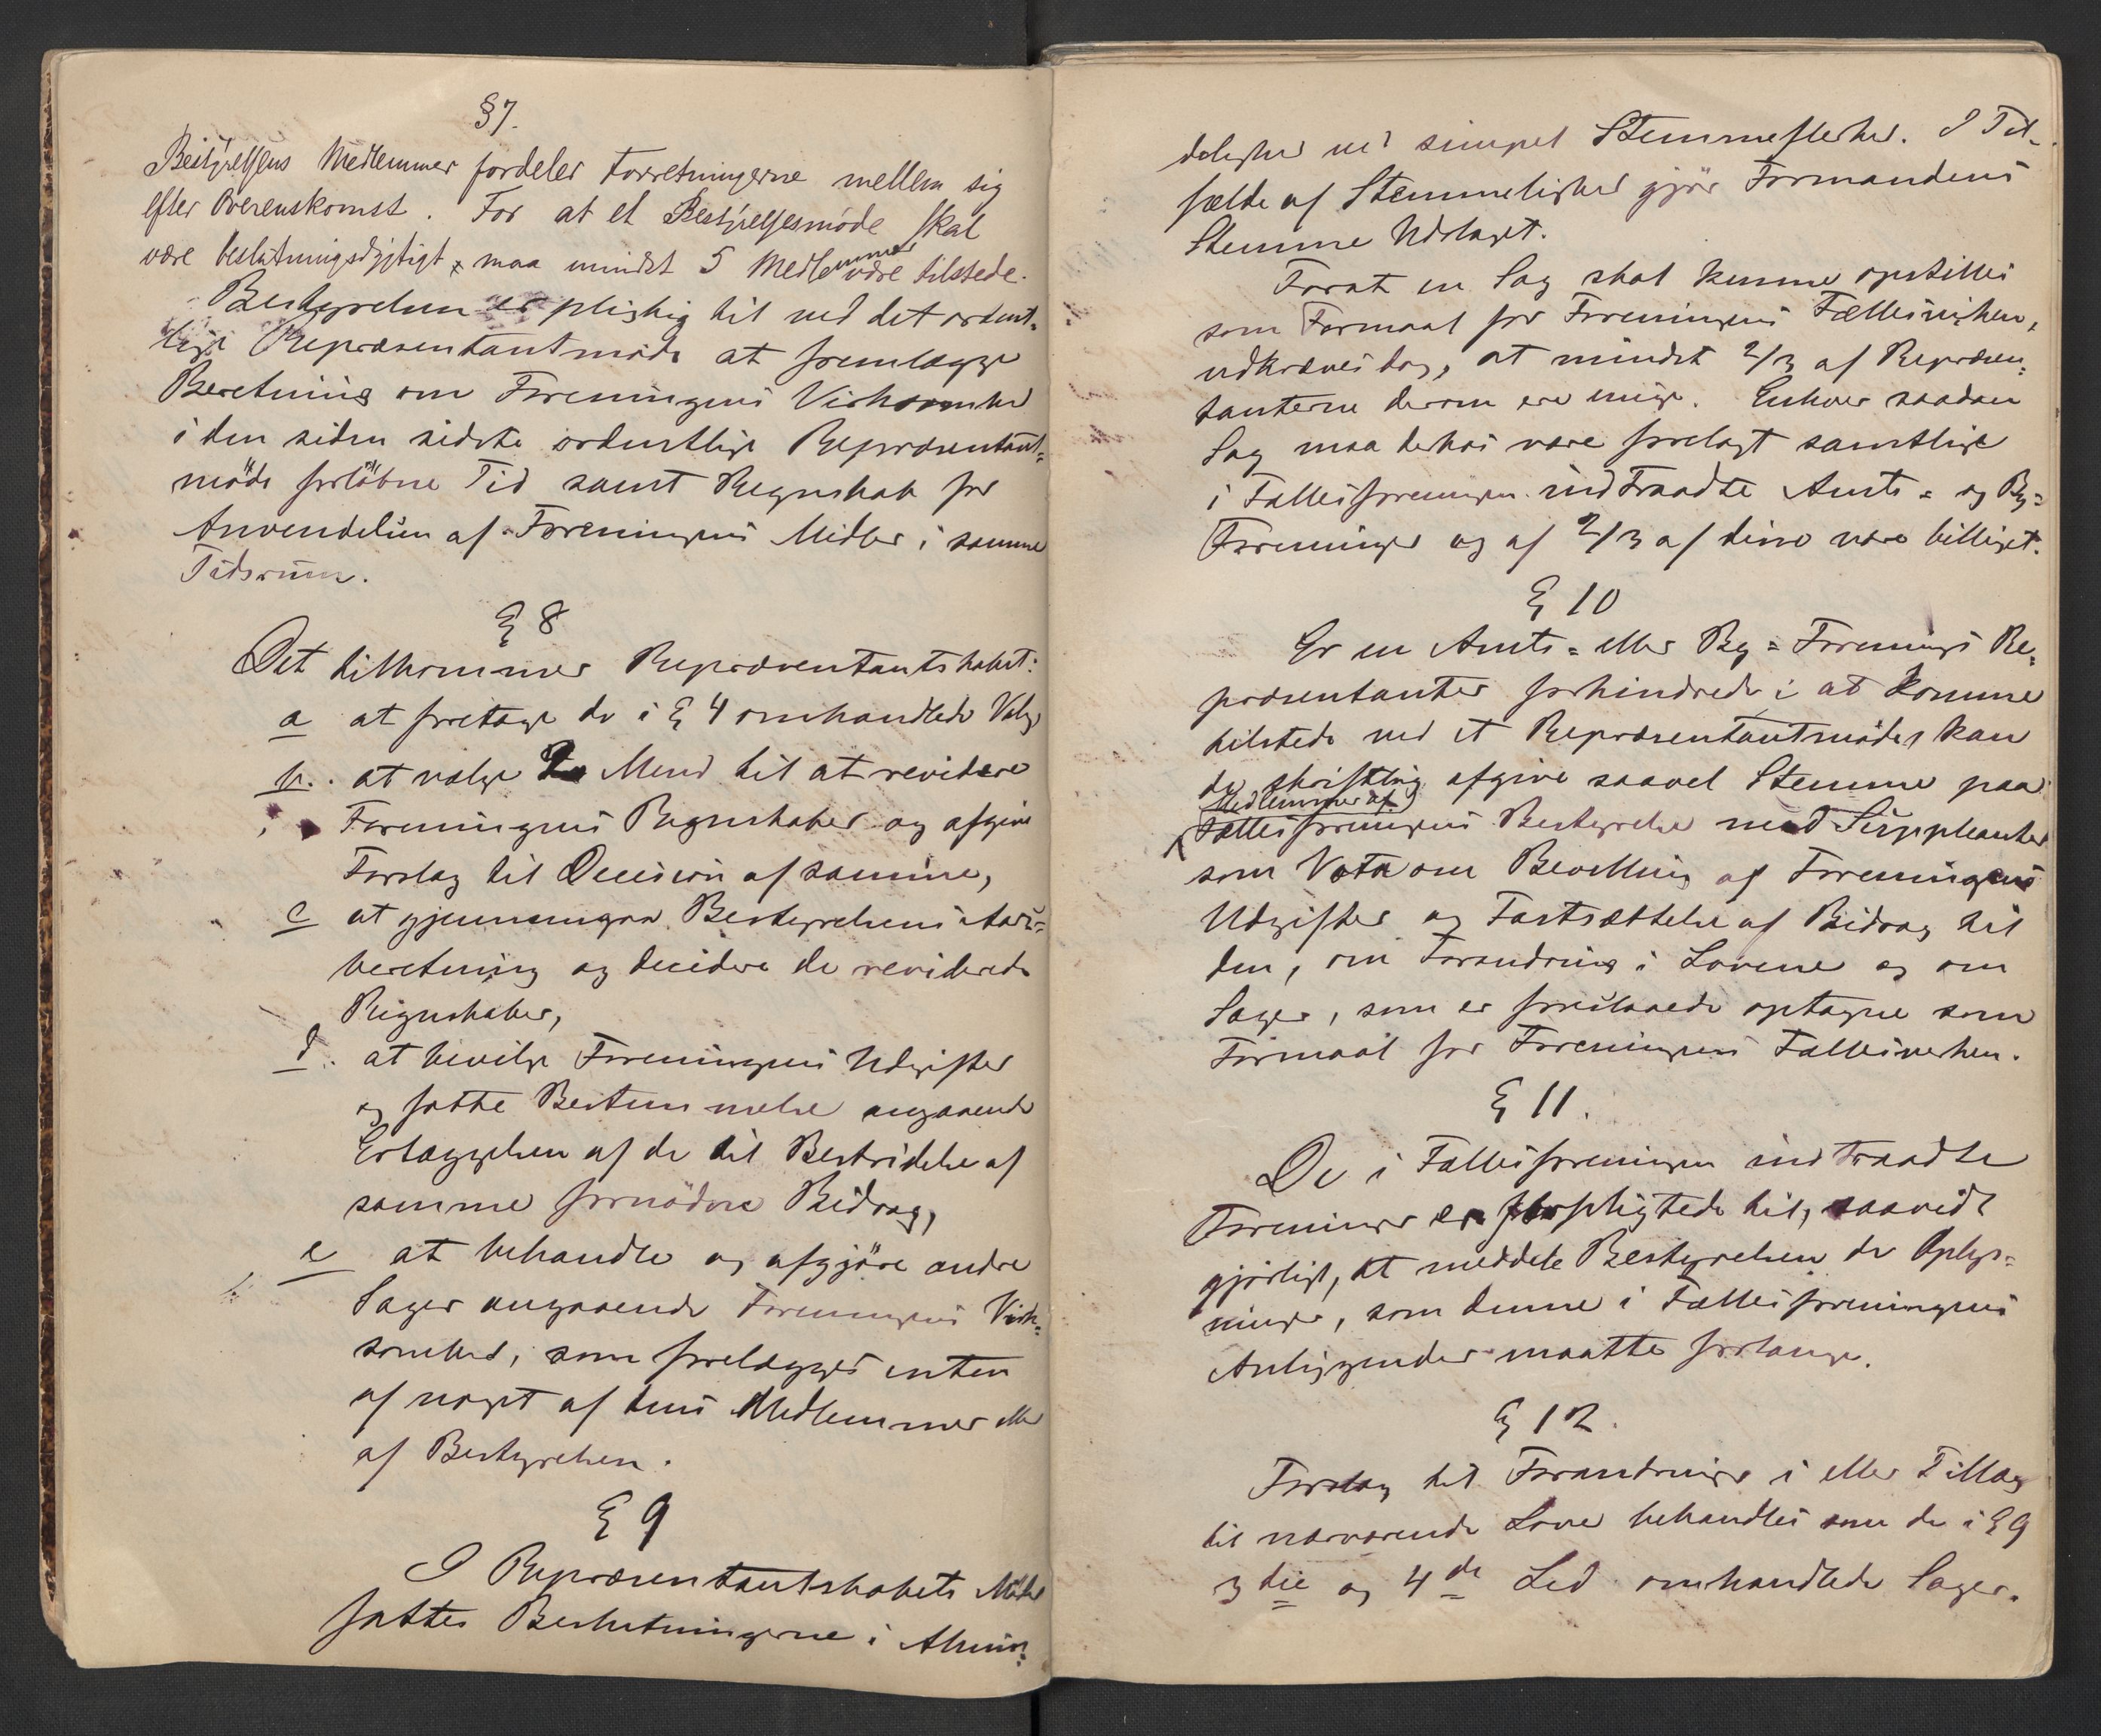 §7.
Bestÿrelsens Medlemmer fordeler Forretningerne mellem sig
efter Overenskomst. For at et Bestÿrelsesmøde skal
være beslutningsdÿgtigt, maa mindst 5 Medlemmer være tilstede.
Bestyrelsen er pligtig til ved det ordent-
lige Repræsentantmöde at fremlægge
Beretning om Foreningens Virksomhed
i den siden sidste ordentlige Repræsentant=
möde forløbne Tid samt Regnskab for
Anvendelsen af Foreningens Midler i samme
Tidsrum.
§ 8
Det tilkommer Repræsentantskabet:
a at foretage de i § 4 omhandlede Valg
b. at vælge 2 Mænd til at revidere
Foreningens Regnskaber og afgive
Forslag til Decision af samme,
c at gjennemgaa Bestyrelsens Aars=
beretning og decidere de reviderede
Regnskaber,
d. at bevilge Foreningens Udgifter
og fatte Bestemmelse angaaende
Erlæggelsen af de til Bestridelse af
samme fornødne Bidrag,
e at behandle og afgjöre andre
Sager angaaende Foreningens Virk=
somhed, som forelægges enten
af noget af dens Medlemmer eller
af Bestyrelsen.
§ 9
I Repræsentantskabets Möder
fattes Beslutningerne i Almin=
delighed ved simpel Stemmeflerhed. I Til-
fælde af Stemmelighed gjör Formandens
Stemme Udslaget.
Forat en Sag skal kunne opstilles
som Formaal for Foreningens Fællesvirken,
udkræves dog, at mindst 2/3 af Repræsen=
tanterne derom ere enige. Enhver saadan
Sag maa derhos være forelagt samtlige
i Fællesforeningen indtraadte Amts= og By=
Foreninger og af 2/3 af disse være billiget.
§ 10
Er en Amts= eller By=Forenings Re=
præsentanter forhindrede i at komme
tilstede ved et Repræsentantmøde, kan
de skriftlig afgive saavel Stemme paa
Medlemmer af
Fællesforeningens Bestyrelse med Suppleanter
som Vota om Bevilling af Foreningens
Udgifter og Fastsættelse af Bidrag til
den, om Forandring i Lovene og om
Sager, som er foreslaaede optagne som
Formaal for Foreningens Fællesvirken.
§ 11.
De i Fællesforeningen indtraadte
Foreninger er forpligtede til, saavidt
gjørligt, at meddele Bestyrelsen de Oplys=
ninger, som denne i Fællesforeningens
Anliggender maatte forlange.
§ 12.
Forslag til Forandringer i eller Tillæg
til nærværende Love behandles som de i § 9
3die og 4de Led omhandlede Sager.